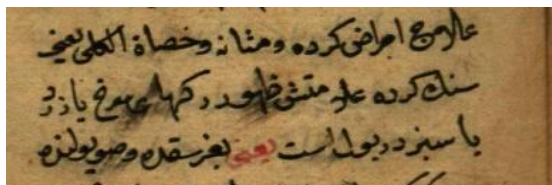 علاج امراض كرده ومثانه وحصاة الكلى يعنى
سنك كرده علامتش ظهور در كمها سرخ يا زرد
يا سبز در بول است يعنى بغرسقده وصو يولنده